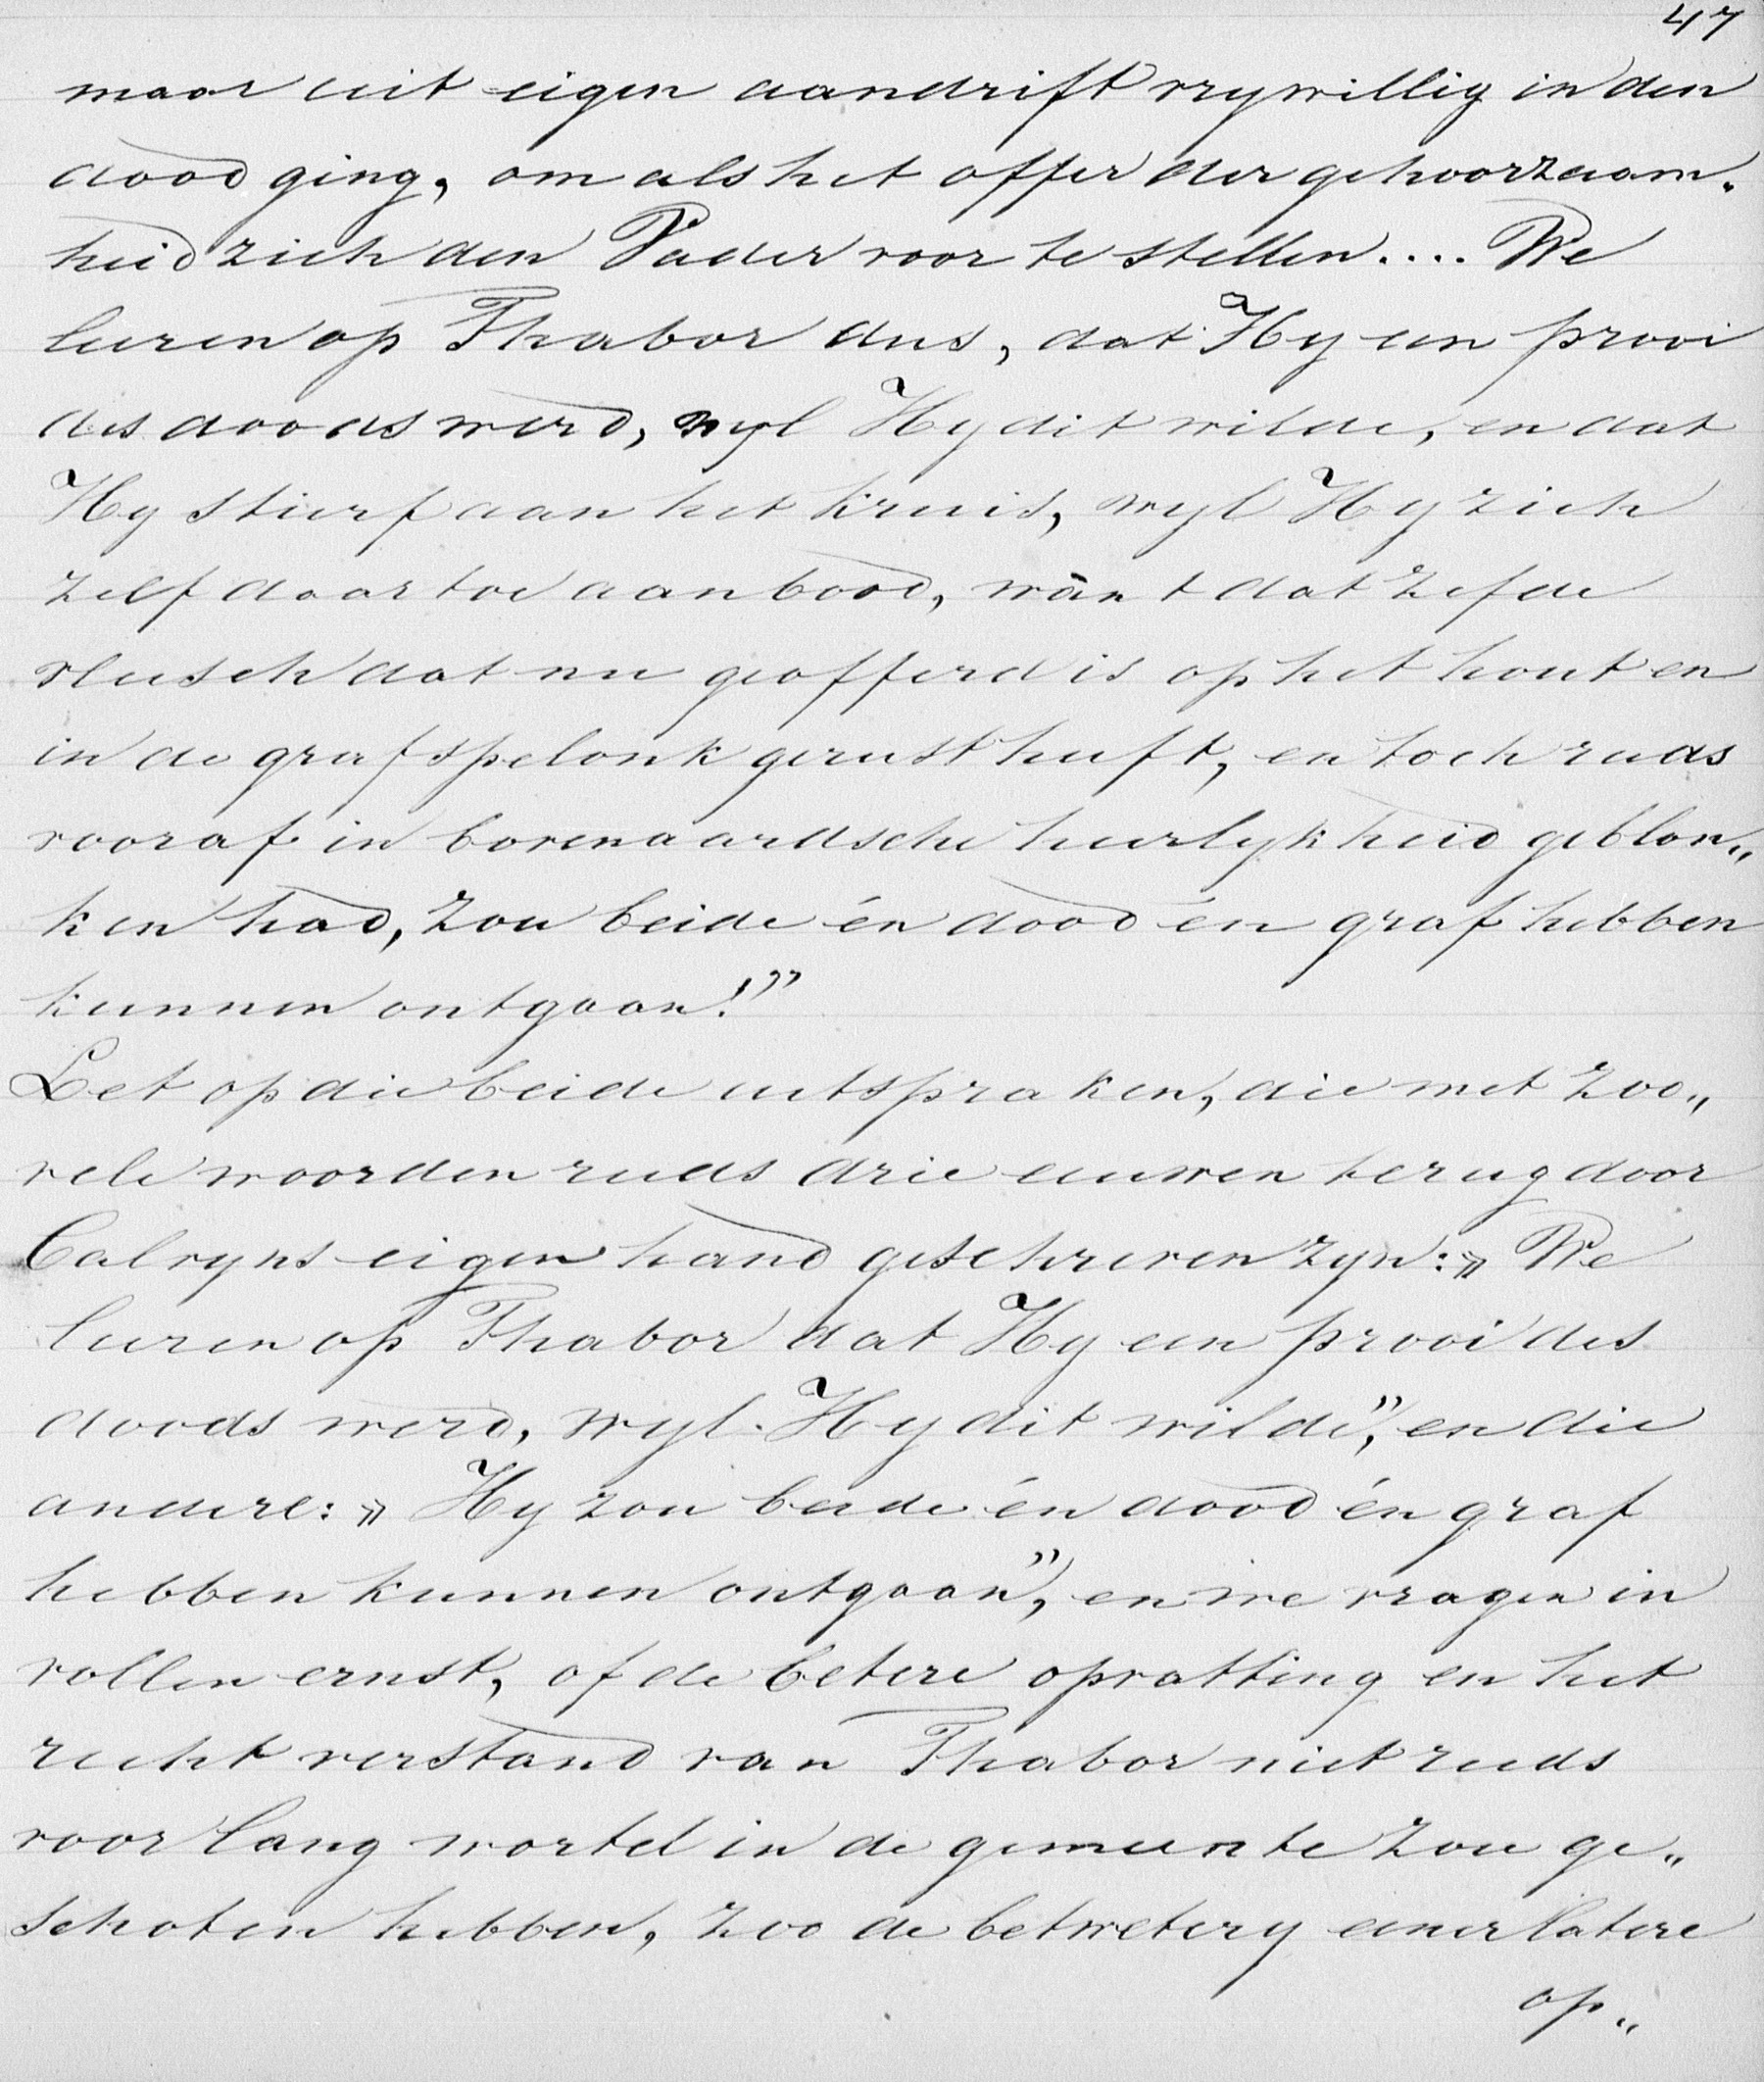 47
maar uit eigen aandrift vrywillig in den
dood ging, om als het offer der gehoorzaam„
heid zich den Vader voor te stellen.... We
leeren op Thabor dus, dat Hy een prooi
des doods werd, wyl Hy dit wilde, en dat
Hy stierf aan het kruis, wyl Hy zich
zelf daartoe aanbood, wānt dat zefde
vleesch dat nu geofferd is op het hout en
in de grafspelonk gerust heeft, en toch reeds
vooraf in bovenaardsche heerlykheid geblon„
ken had, zou beide én dood én graf hebben
kunnen ontgaan!”
Let op die beide uitspraken, die met zoo„
vele woorden reeds drie eeuwen terug door
Calvyns eigen hand geschreven zyn: „We
leeren op Thabor dat Hy een prooi des
doods werd, wyl Hy dit wilde”, en die
andere: „Hy zou beide én dood én graf
hebben kunnen ontgaan”, en we vragen in
vollen ernst, of de betere opvatting en het
recht verstand van Thabor niet reeds
voor lang wortel in de gemeente zou ge„
schoten hebben, zoo de betwetery eener latere
op„